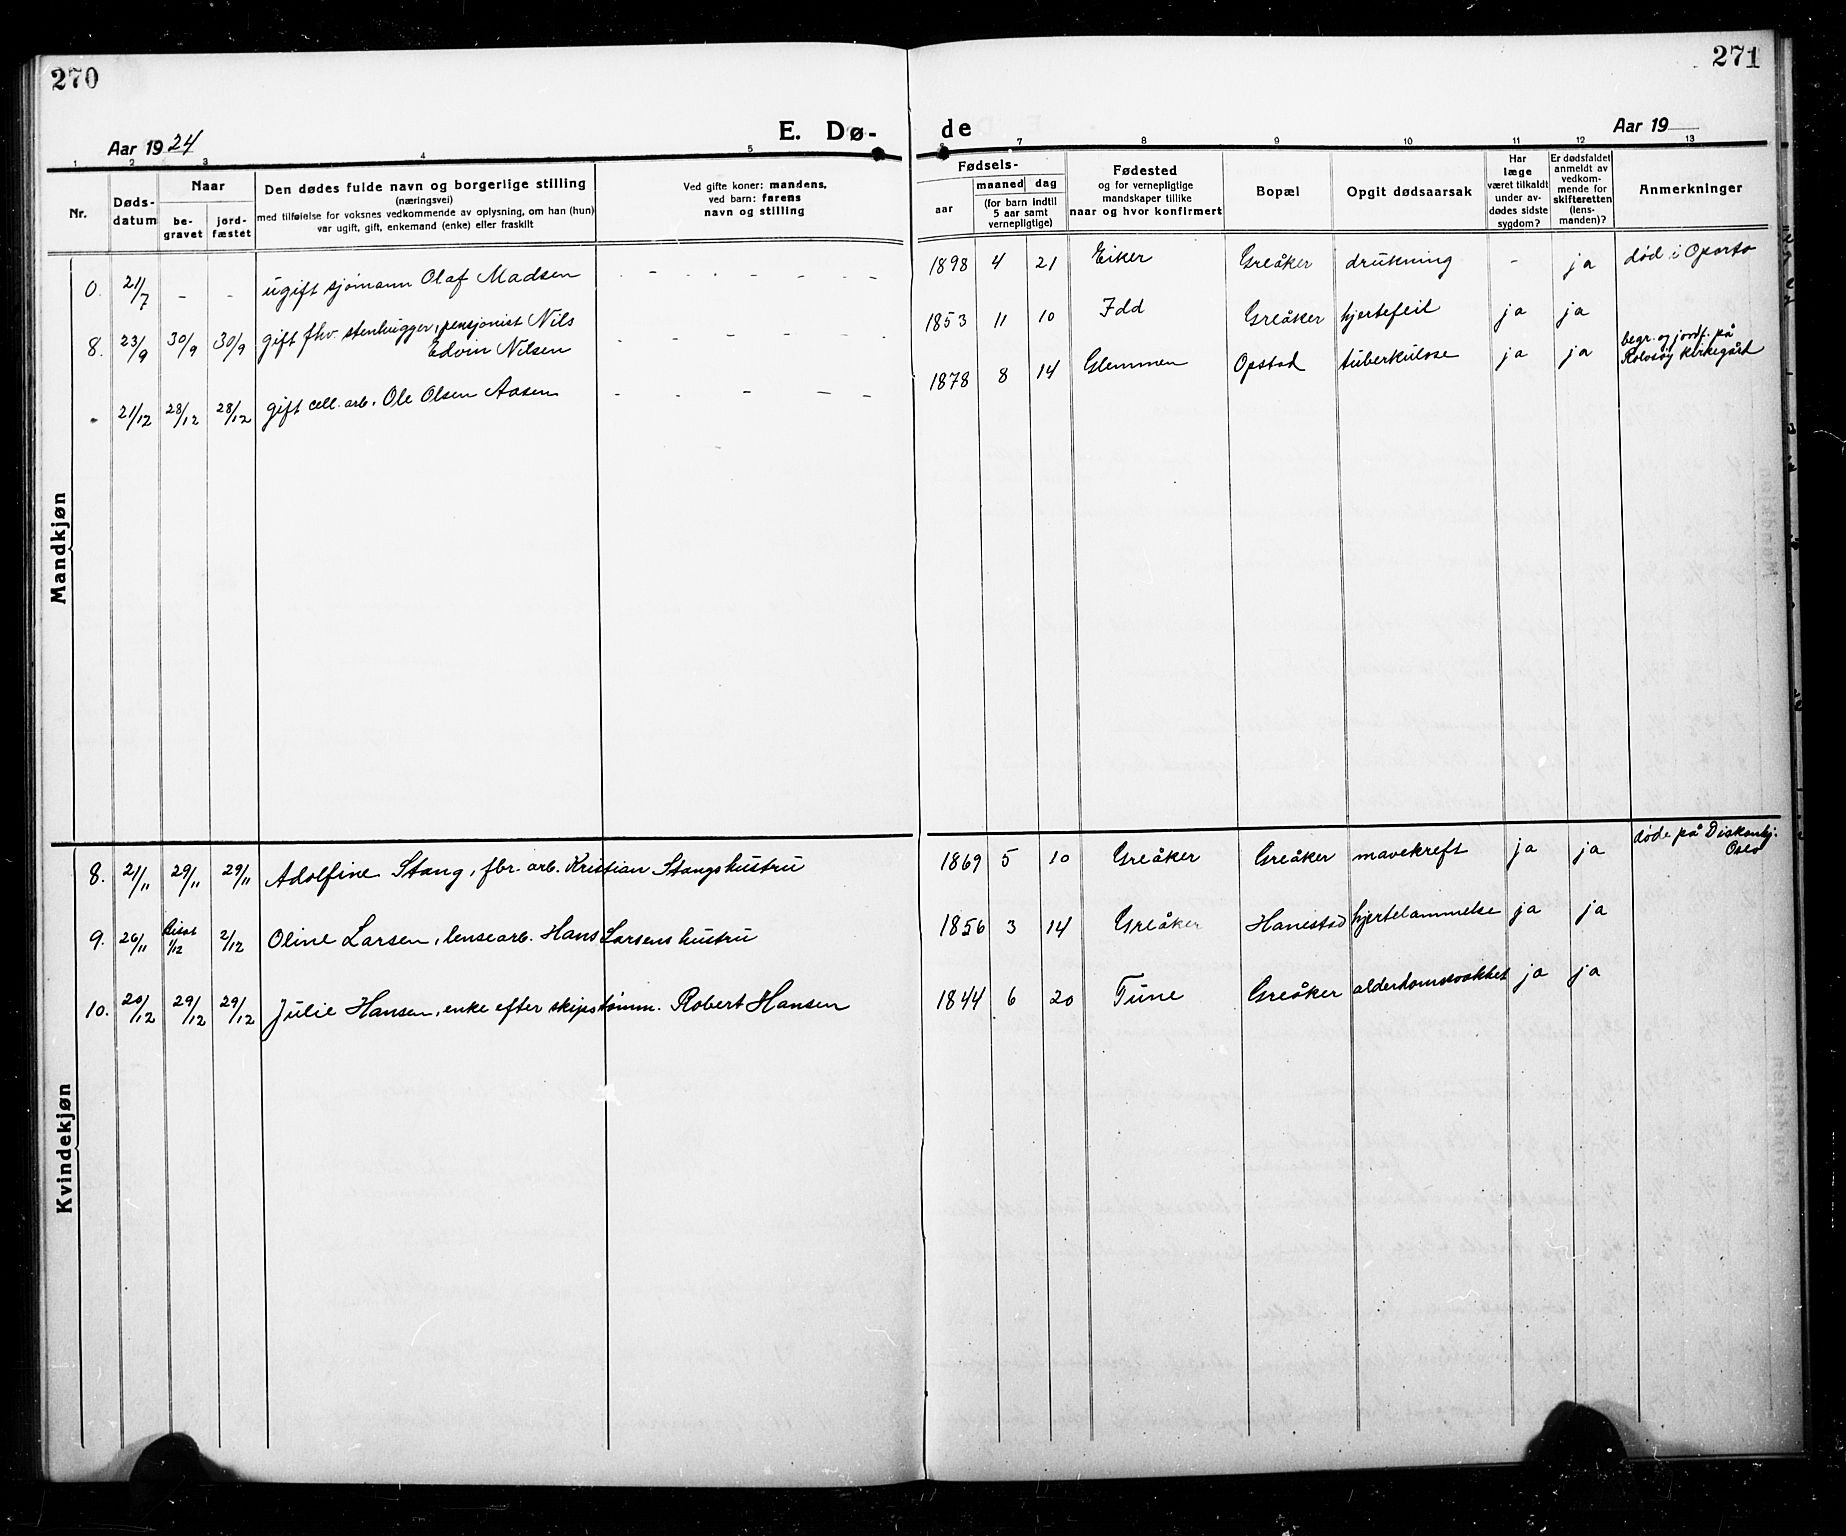 270
271
Aar 1924
E. Dø-
de
Aar 19
1 2 3 4 5
6 7 8 9 10 11 12 13
Nr.
Døds-
datum
Naar
be-
gravet
jord-
fæstet
Den dødes fulde navn og borgerlige stilling
(næringsvei)
med tilføielse for voksnes vedkommende av oplysning, om han (hun)
var ugift, gift, enkemand (enke) eller fraskilt
Ved gifte koner: mandens,
ved barn: farens
navn og stilling
Fødsels-
aar
maaned dag
(for barn indtil
5 aar samt
vernepligtige)
Fødested
og for vernepligtige
mandskaper tillike
naar og hvor konfirmert
Bopæl
Opgit dødsaarsak
Har
læge
været tilkaldt
under av-
dødes sidste
sygdom?
Er dødsfaldet
anmeldt av
vedkom-
mende for
skifteretten
(lens-
manden)?
Anmerkninger
Mandkjøn
0. 21/7 - - ugift sjømann Olaf Madsen - - - - - 1898 4 21 Eiker Greåker drukning - ja død i Oporto
8. 23/9 30/9 30/9 gift fhv. stenhugger, pensjonist Nils
Edvin Nilsen - - - - 1853 11 10 Idd Greåker hjertefeil ja ja
- 21/12 28/12 28/12 gift cell. arb. Ole Olsen Aasen - - - - - 1878 8 14 Glemmen Opstad tuberkulose ja ja begr. og jordf. på
Rolvsøy kirkegård
Kvindekjøn
8. 21/11 29/11 29/11 Adolfine Stang, fbr. arb. Kristian Stangs hustru 1869 5 10 Greåker Greåker mavekreft ja ja døde på Diakonhj.
Oslo
9. 26/11 1/12 2/12 Oline Larsen, lensearb. Hans Larsens hustru 1856 3 14 Greåker Hanestad hjertelammelse ja ja
10. 20/12 29/12 29/12 Julie Hansen, enke efter skipstømm. Robert Hansen 1844 6 20 Tune Greåker alderdomssvakhet ja ja